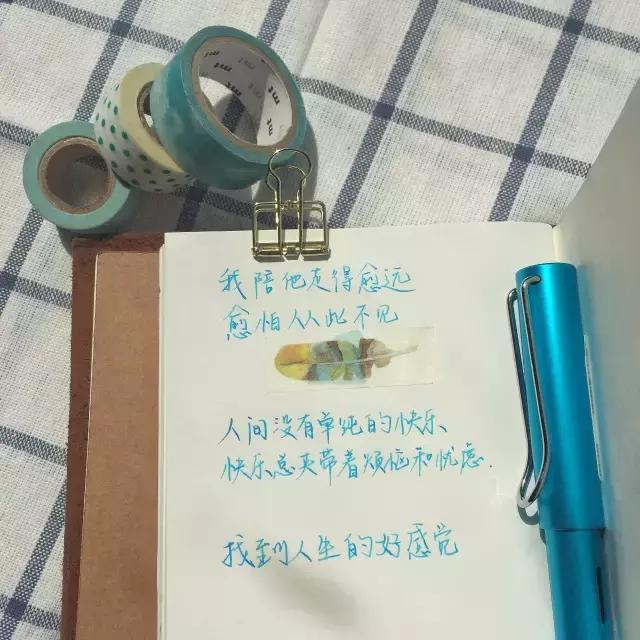 mt
我陪他走得愈远
愈怕从此不见
人间没有单纯的快乐、
快乐总夹带着烦恼和忧虑.
找到人生的好感觉